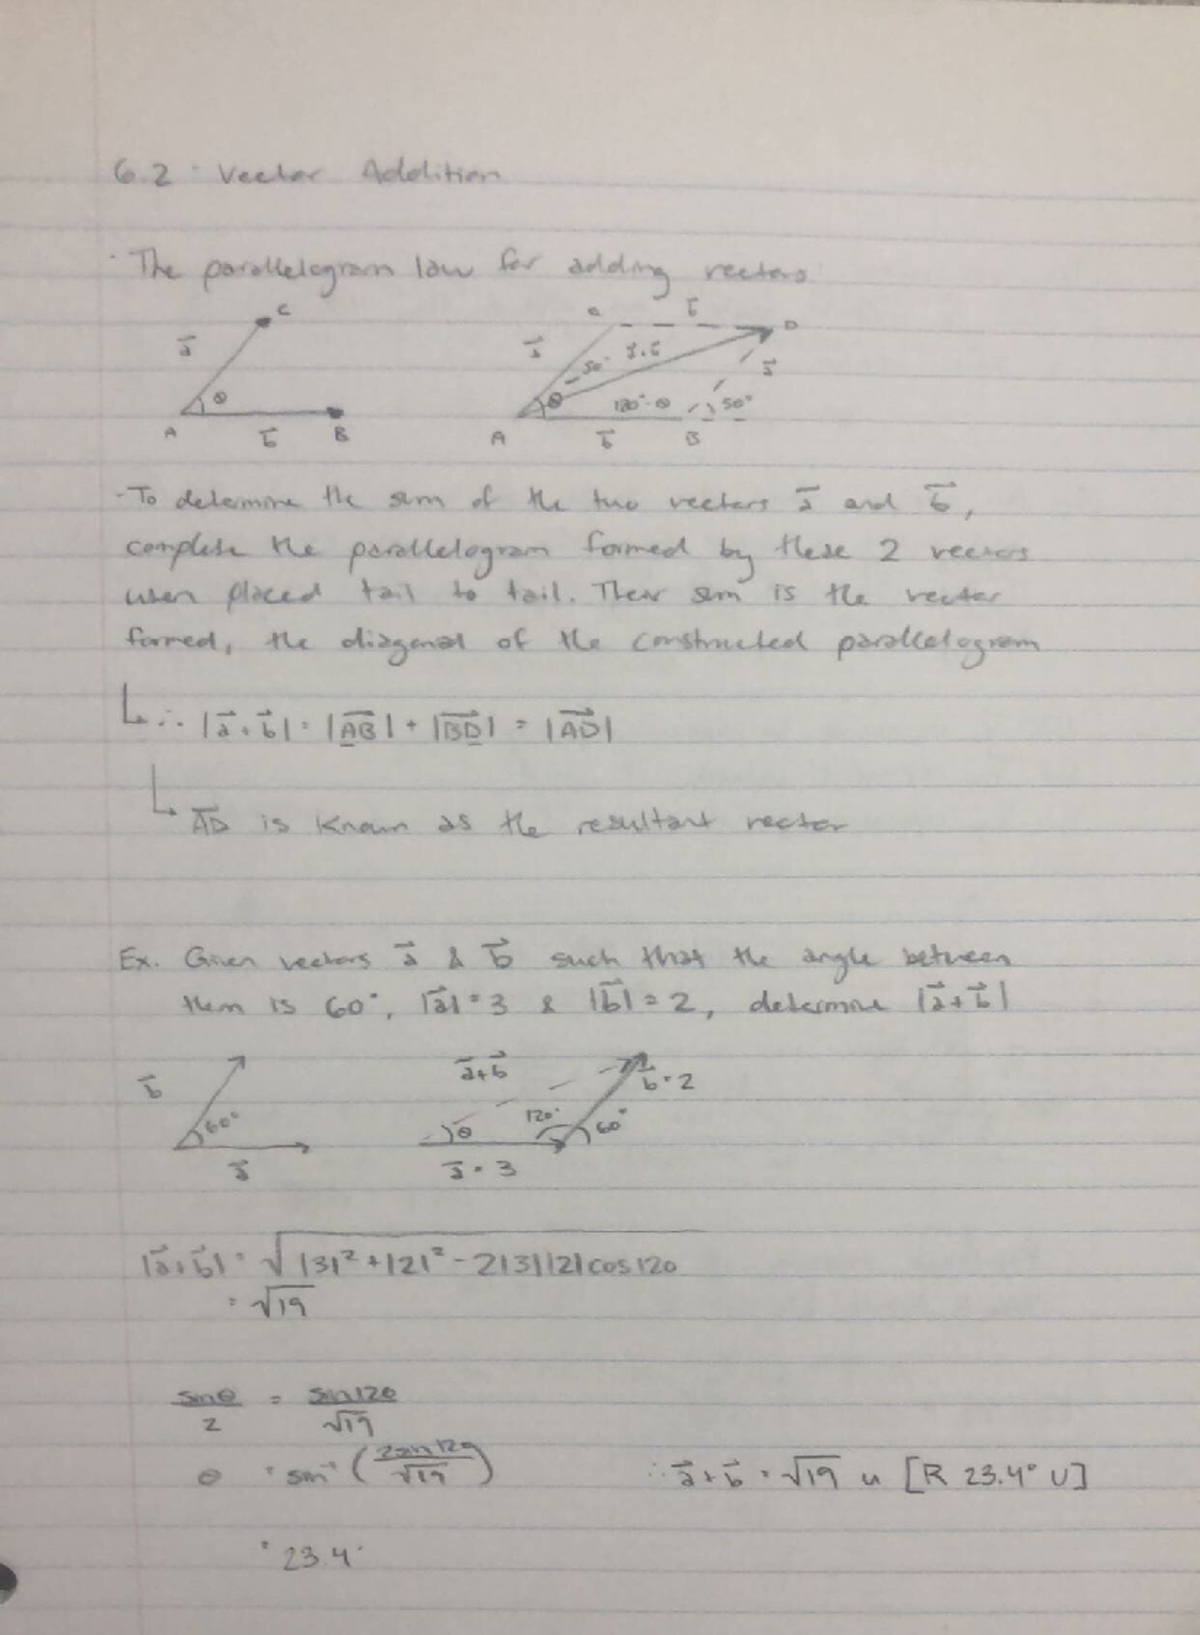 6.2 · Vector Addition
· The parallelogram law for adding vectors
C C b⃗ D
a⃗ a⃗ 50° a⃗+b⃗ a⃗
θ θ 180°-θ 50°
A b⃗ B A b⃗ B
- To determine the sum of the two vectors a⃗ and b⃗,
complete the parallelogram formed by these 2 vectors
when placed tail to tail. Their sum is the vector
formed, the diagonal of the constructed parallelogram
↳ ∴ |a⃗+b⃗| = |AB⃗| + |BD⃗| = |AD⃗|
↳ AD⃗ is known as the resultant vector
Ex. Given vectors a⃗ & b⃗ such that the angle between
them is 60°, |a⃗| = 3 & |b⃗| = 2, determine |a⃗+b⃗|
b⃗ a⃗+b⃗ b⃗ = 2
60° θ 120° 60°
a⃗ a⃗ = 3
|a⃗+b⃗| = √|3|² + |2|² - 2|3||2|cos120
= √19
sinθ/2 = sin120/√19
θ = sin⁻¹(2sin120/√19) ∴ a⃗+b⃗ = √19 u [R 23.4° U]
= 23.4°